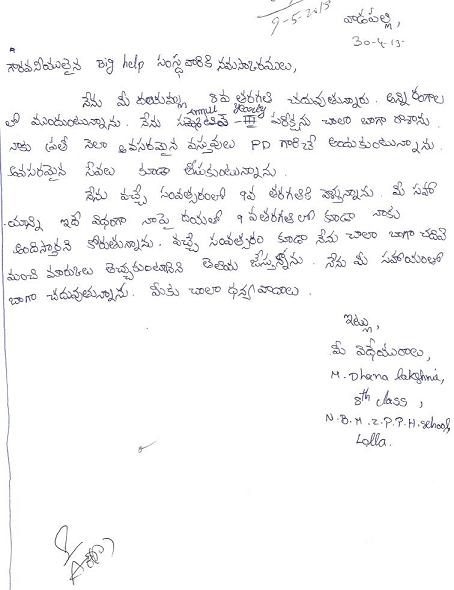 9-5-2013
వాడపల్లి,
30-4-13.
గౌరవనీయులైన Big help సంస్థ వారికి నమస్కారములు,
నేను మీ దయవల్ల 8వ తరగతి చదువుతున్నారు. అన్ని రంగాల
లో ముందుంటున్నాను. నేను annual yearly - III పరీక్షను చాలా బాగా రాశాను.
నాకు ప్రతి నెలా అవసరమైన వస్తువులు PD గారిచే అందుకుంటున్నాను.
అవసరమైన సేవలు కూడా తీసుకుంటున్నాను.
నేను వచ్చే సంవత్సరంలో 9వ తరగతికి వెళ్తున్నాను. మీ సహా
-యాన్ని ఇదే విధంగా నాపై దయతో 9వ తరగతి లో కూడా నాకు
అందిస్తారని కోరుతున్నాను. వచ్చే సంవత్సరం కూడా నేను చాలా బాగా చదివి
మంచి మార్కులు తెచ్చుకుంటానని తెలియ జేస్తున్నాను. నేను మీ సహాయంతో
బాగా చదువుతున్నాను. మీకు చాలా ధన్యవాదాలు.
ఇట్లు,
మీ విధేయురాలు,
M. Dhana lakshmi,
8th class,
N.B.M.Z.P.P.H.school,
Lolla.